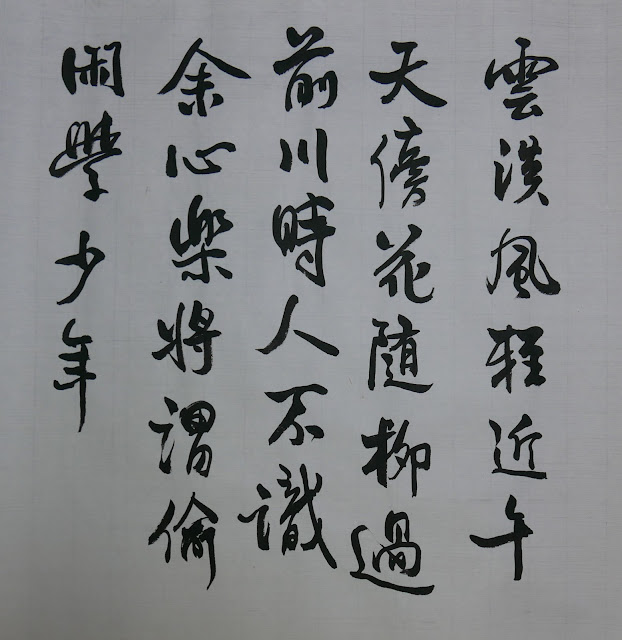 雲淡風輕近午
天傍花隨柳過
前川時人不識
余心樂將謂偷
閑學少年